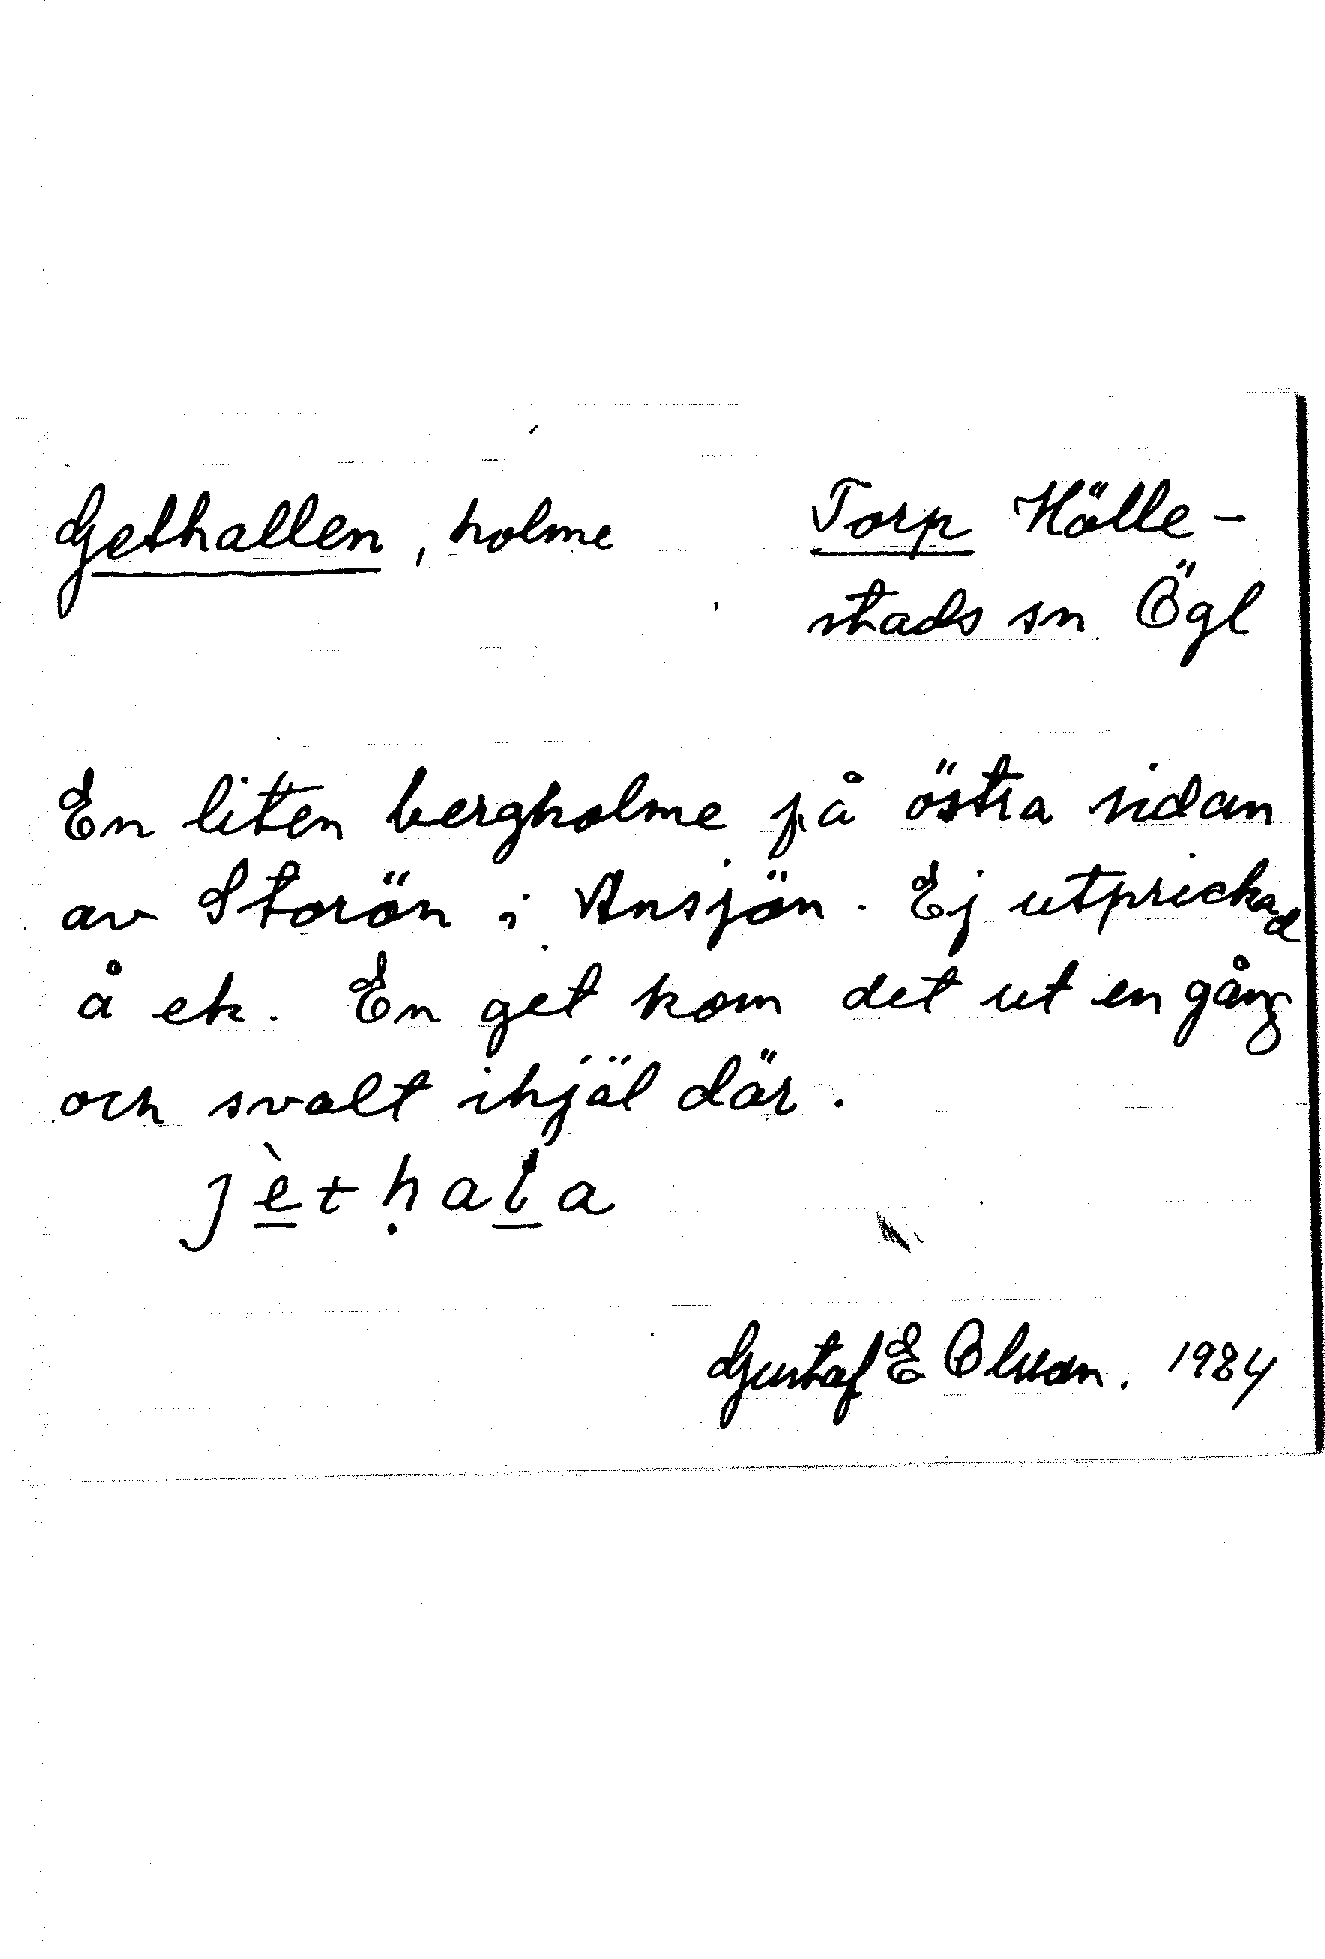 Gethallen, holme
Torp Hälle-
stads sn Ögl
En liten bergholme på östra sidan
av Storön i Ansjön. Ej utprickad
å ek. En get kom det ut en gång
och svalt ihjäl där.
jèthala
Gustaf E Olsson. 1984